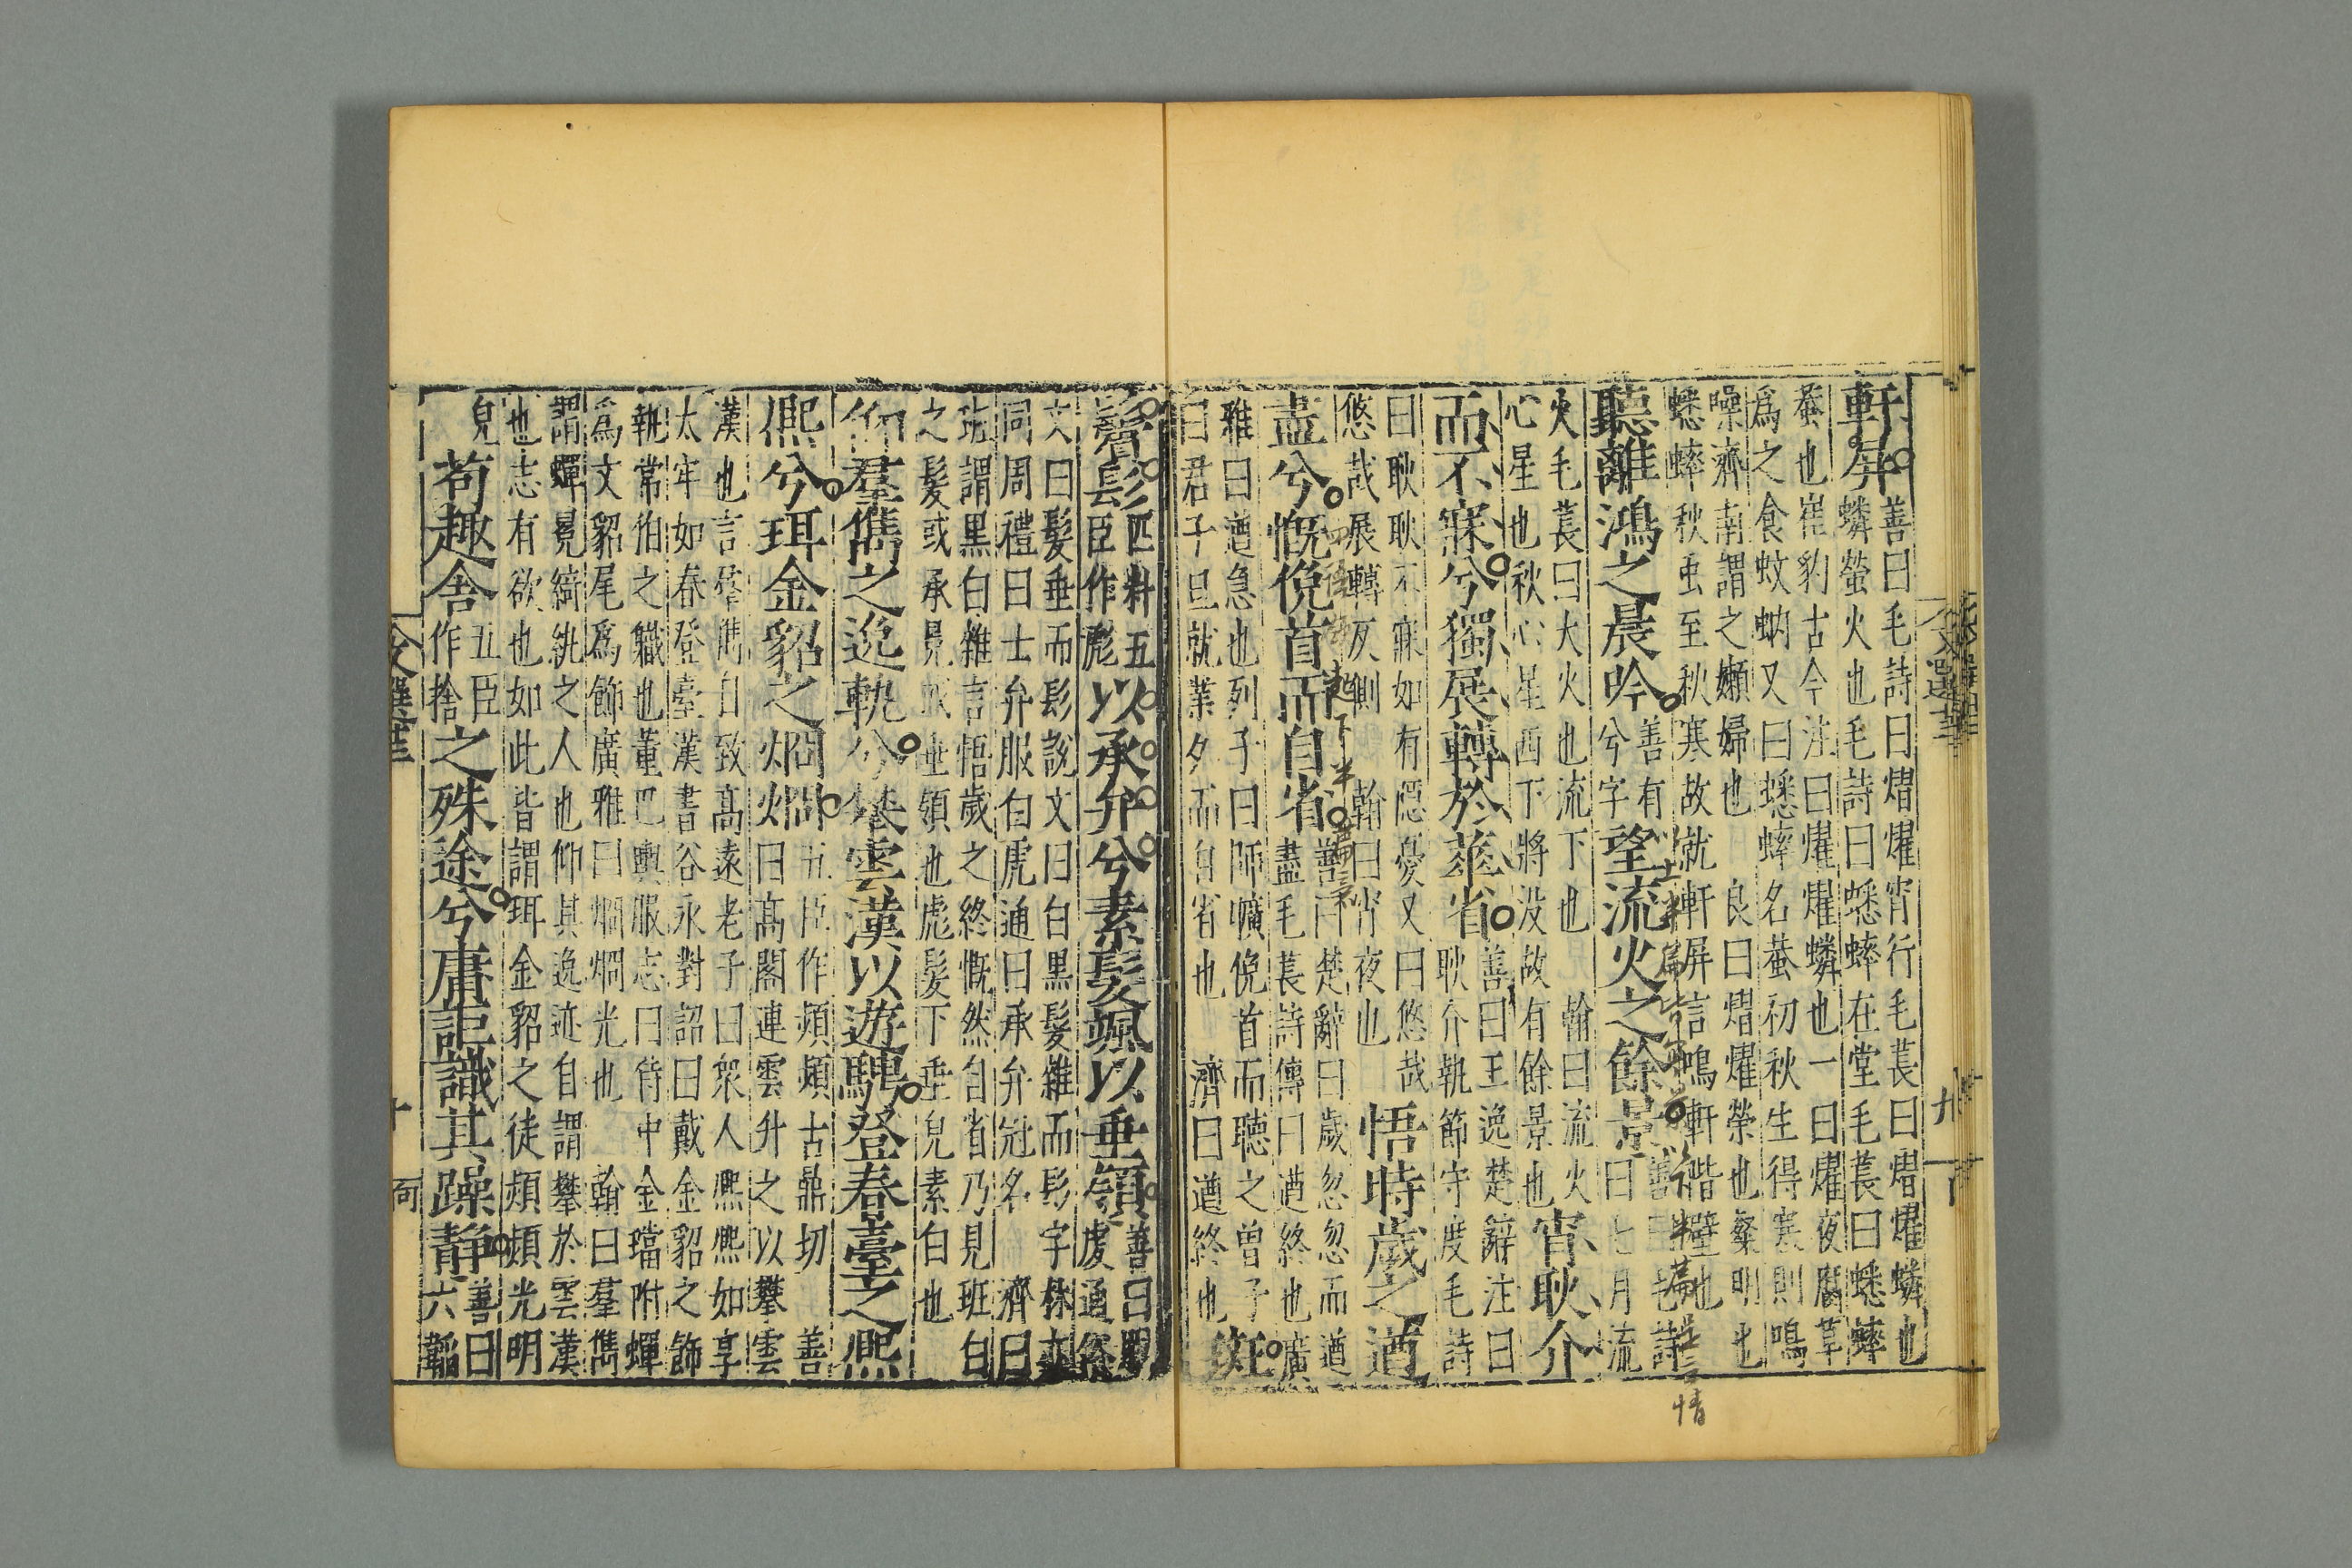 軒屏善曰毛詩曰熠燿宵行毛萇曰熠燿燐也
燐螢火也毛詩曰蟋蟀在堂毛萇曰蟋蟀
蛬也崔豹古今注曰燿燿燐也一曰燿夜腐草
爲之食蚊蚋又曰蟋蟀名蛬初秋生得寒則鳴
噪濟南謂之嬾婦也 良曰熠燿熒也粲明也
蟋蟀秋虫至秋寒故就軒屏言鳴軒階壁也
聽離鴻之晨吟善有兮字望流火之餘景善曰毛詩曰七月流
火毛萇曰大火也流下也 翰曰流火
心星也秋心星西下將没故有餘景也宵耿介
而不寐兮獨展轉於華省善曰王逸楚辭注曰耿介執節守度毛詩
曰耿耿不寐如有隱憂又曰悠哉
悠哉展轉反側 翰曰宵夜也悟時歲之遒
盡兮慨俛首而自省善曰楚辭曰歲忽忽而遒盡毛萇詩傳曰遒終也廣
雅曰遒急也列子曰師曠俛首而聽之曾子
曰君子旦就業夕而自省也 濟曰遒終也斑
鬢髟匹料五臣作彪以承弁兮素髮颯以垂領善曰
文曰髮垂而髟説文曰白黑髮雜而髟字林
同周禮曰士弁服白虎通曰承弁冠名 濟曰
班謂黑白雜言悟歲之終慨然自省乃見班白
之髮或承冕或垂領也彪髮下垂皃素白也
仰羣儁之逸軌兮攀雲漢以遊騁登春臺之熙
熙兮珥金貂之烱烱五臣作熲熲古鼎切 善曰高閣連雲升之以攀雲
漢也言羣儁自致高遠老子曰衆人熙熙如享
太牢如春登臺漢書谷永對詔曰戴金貂之飾
執常伯之職也董巴輿服志曰侍中金璫附蟬
爲文貂尾爲飾廣雅曰烱烱光也 翰曰羣儁
謂蟬冕綺紈之人也仰其逸迹自謂攀於雲漢
也志有欲也如此皆謂珥金貂之徒熲熲光明
皃苟趣舍五臣作捨之殊途兮庸詎識其躁靜善曰六韜
文選卷十三
九